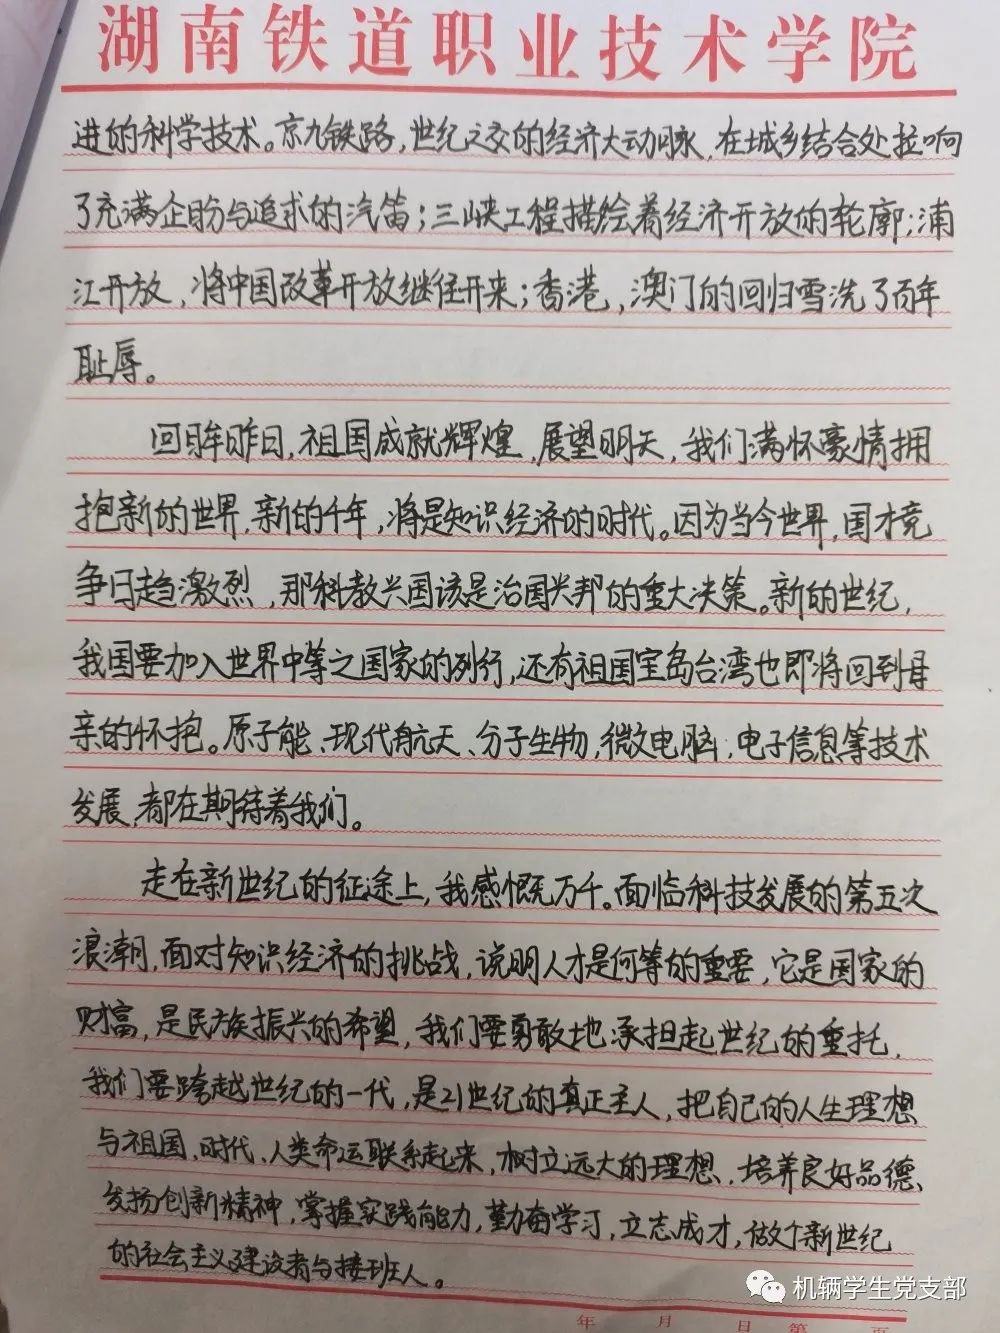 湖南铁道职业技术学院
进的科学技术。京九铁路,世纪之交的经济大动脉,在城乡结合处拉响
了充满企盼与追求的汽笛;三峡工程描绘着经济开放的轮廓;浦
江开放,将中国改革开放继往开来;香港,澳门的回归雪洗了百年
耻辱。
回眸昨日,祖国成就辉煌,展望明天,我们满怀豪情拥
抱新的世界,新的千年,将是知识经济的时代。因为当今世界,国才竞
争日趋激烈,那科教兴国该是治国兴邦的重大决策。新的世纪,
我国要加入世界中等之国家的列行,还有祖国宝岛台湾也即将回到母
亲的怀抱。原子能、现代航天、分子生物,微电脑,电子信息等技术
发展,都在期待着我们。
走在新世纪的征途上,我感慨万千。面临科技发展的第五次
浪潮,面对知识经济的挑战,说明人才是何等的重要,它是国家的
财富,是民族振兴的希望,我们要勇敢地承担起世纪的重托,
我们要跨越世纪的一代,是21世纪的真正主人,把自己的人生理想
与祖国,时代,人类命运联系起来,树立远大的理想,培养良好品德、
发扬创新精神,掌握实践能力,勤奋学习,立志成才,做个新世纪
的社会主义建设者与接班人。
机辆学生党支部
年 月 日 第 页